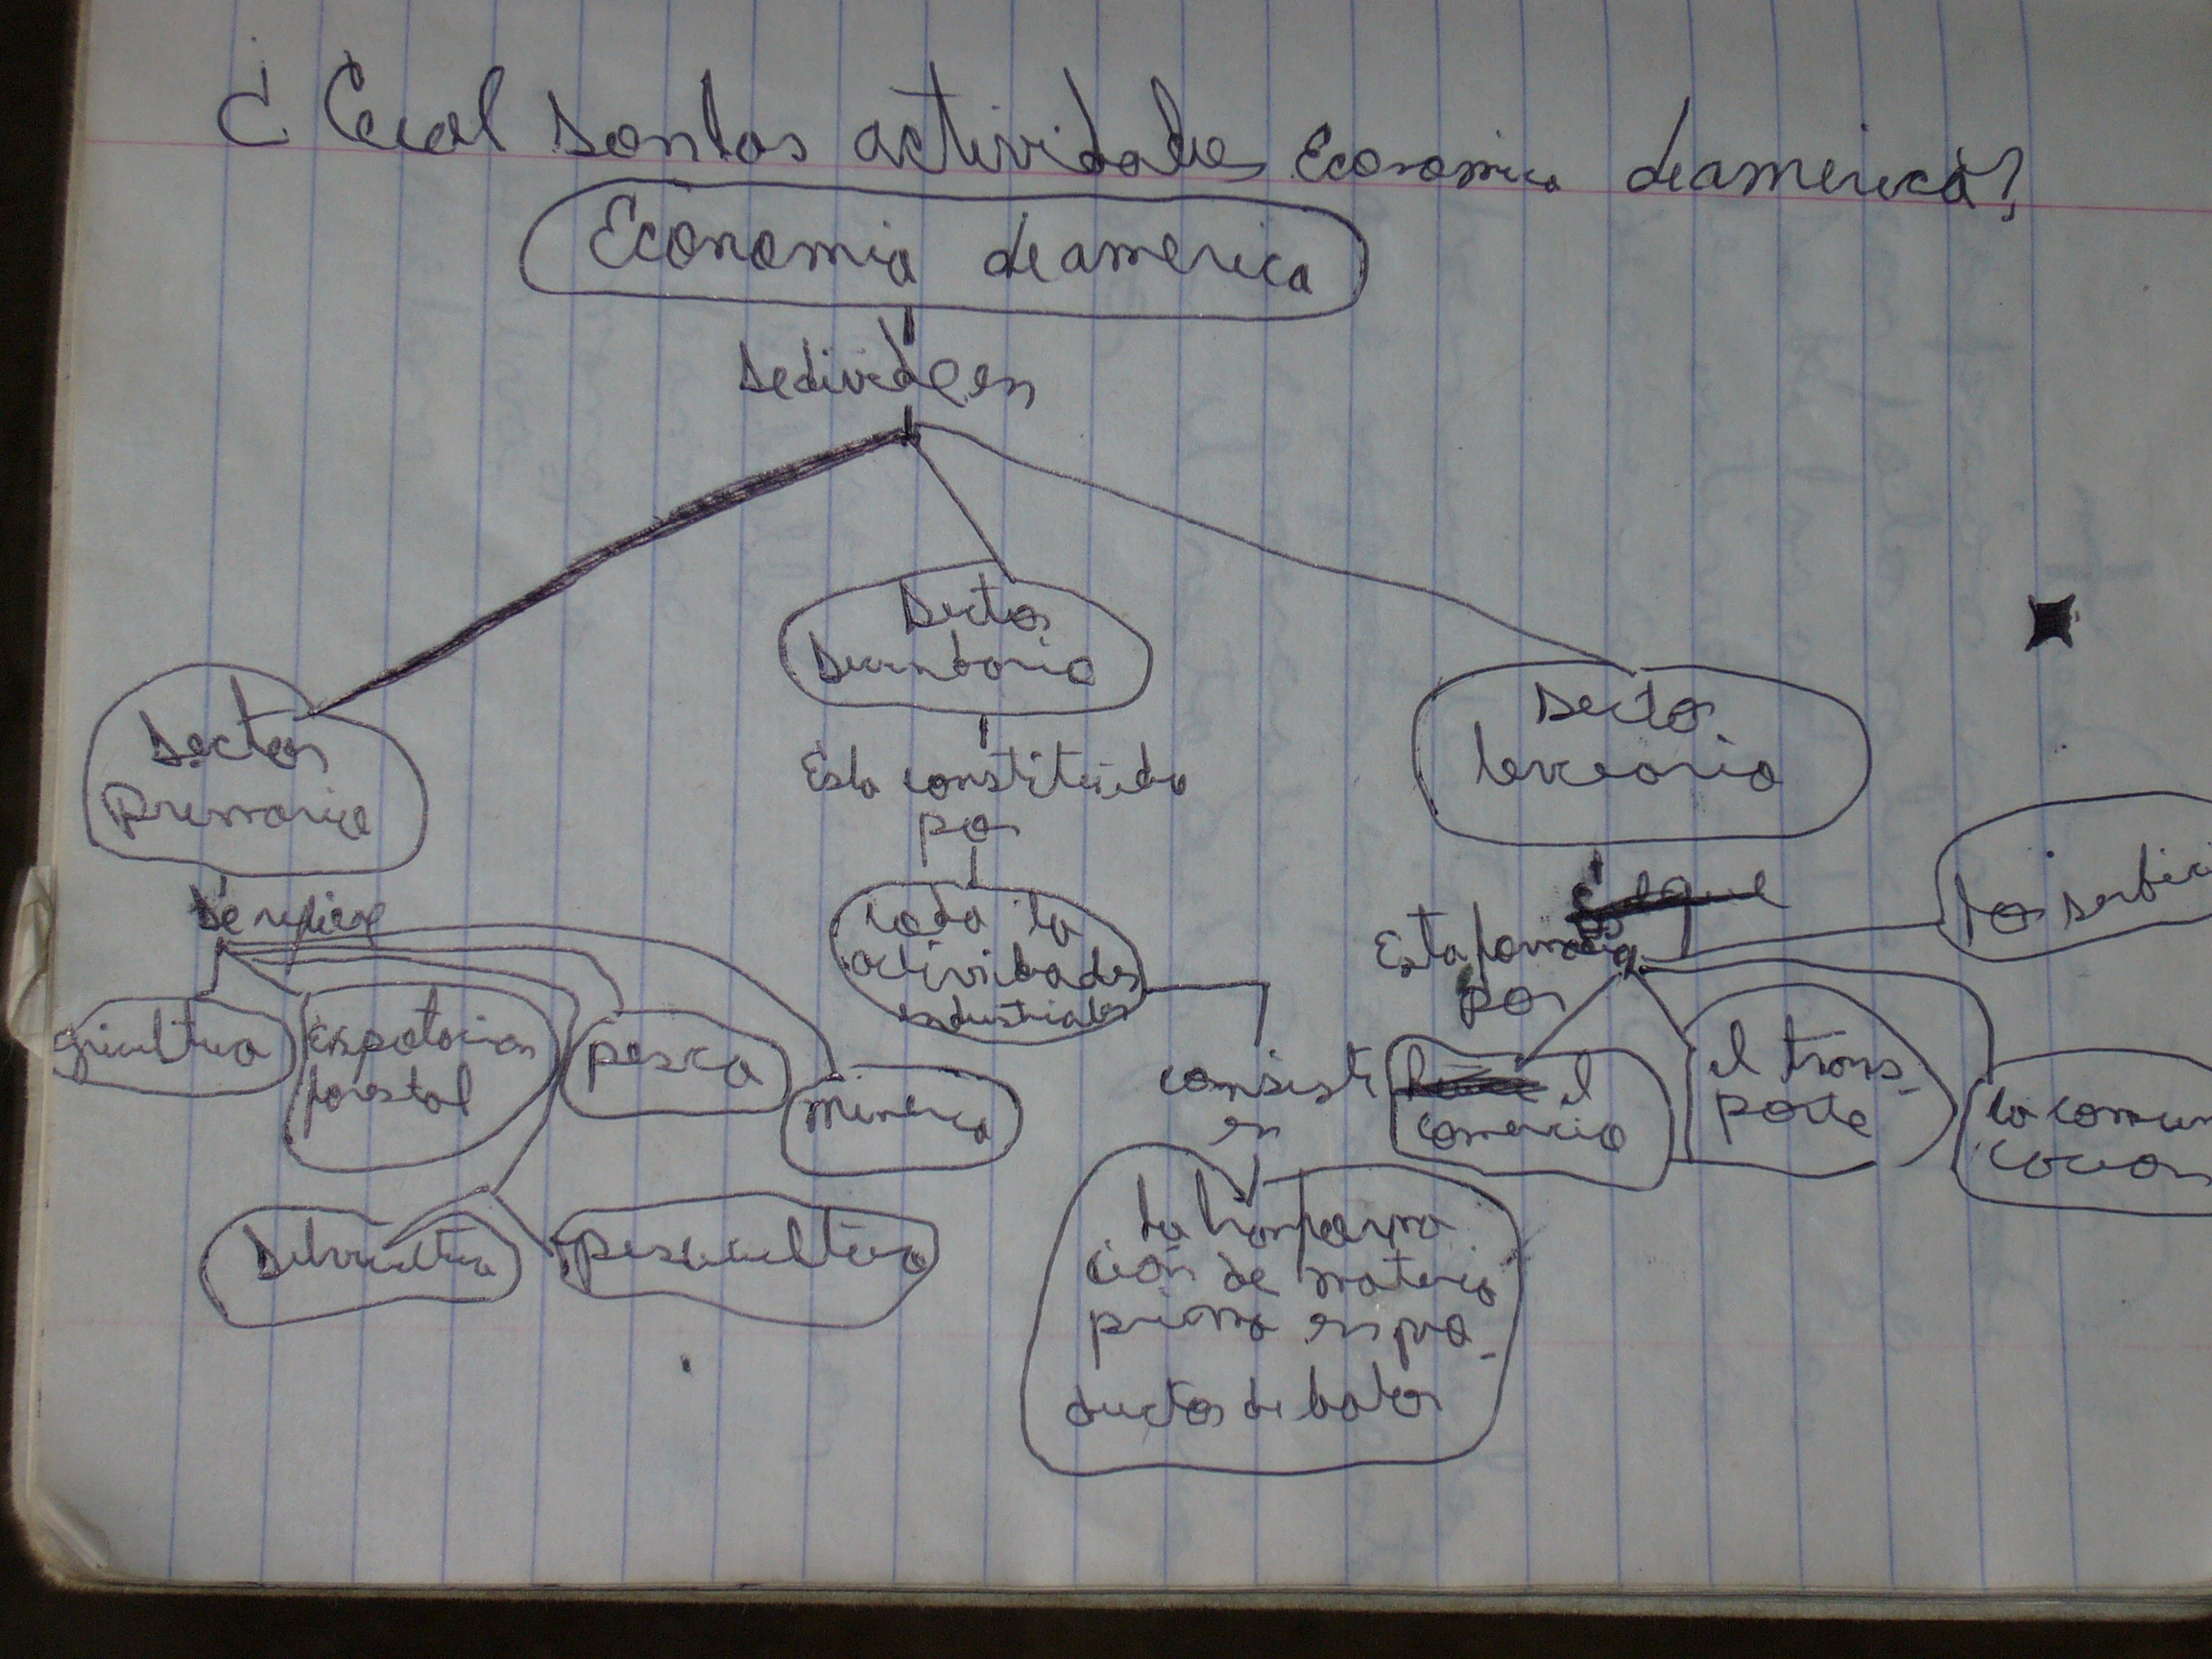 ¿Cual son las actividades Economica de america?
Economia de america
se divide en
Sector
primario
Se refiere
gricultura
forestal
pesca
mineria
Selvicultura
pescicultura
Sector
Secundario
Esta constituido
por
toda la
actividades
industriales
consiste
en
la tranforma
ción de materia
prima en pro-
ductos de balor
Sector
terceario
Esta formada
por
el
comercio
el trans-
porte
la comun
cacion
los serbici